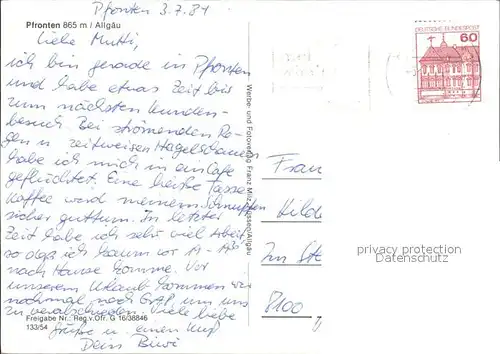 Pfronten 3.7.84
Pfronten 865 m / Allgäu
Liebe Mutti,
ich bin gerade in Pfronten
und habe etwas Zeit bis
zum nächsten Kunden-
besuch. Bei strömenden Re-
gen u. zeitweisen Hagelschauern
habe ich mich in ein Cafe
geflüchtet. Eine heiße Tasse
Kaffee wird meinem Schnupfen
sicher guttun. In letzter
Zeit habe ich sehr viel Arbeit
so daß ich kaum vor
nach Hause komme. Vor
unserem Urlaub kommen wir
nochmal nach GAP um uns
zu verabschieden. Viele liebe
Grüße u. einen Kuß
Dein
Freigabe Nr.: Reg.v.Ofr. G 16/38846
133/54
Werbe- und Fotoverlag Franz Milz, Füssen/Allgäu
DEUTSCHE BUNDESPOST
60
Frau
Hilde
Im
8100
privacy protection
Datenschutz